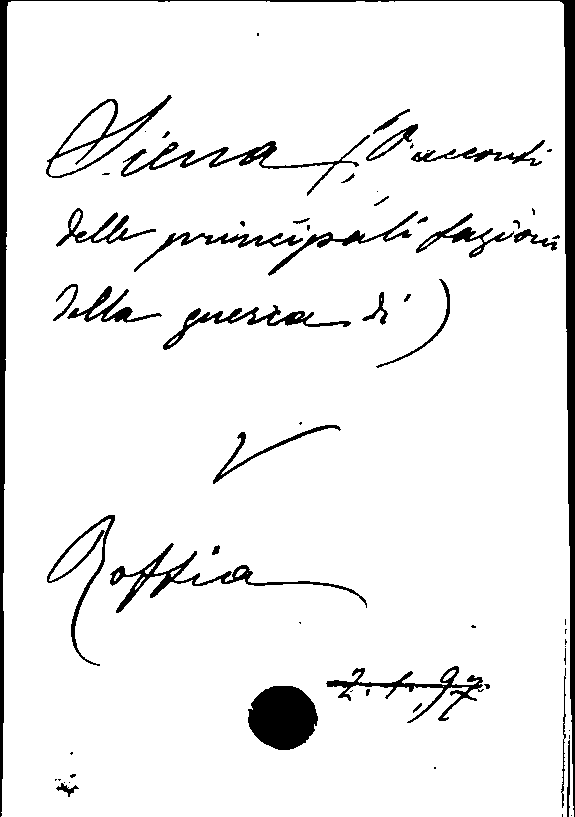 Siena (Racconti
delle principali fazioni
della guerra di)
V
Roffia
2.1.97